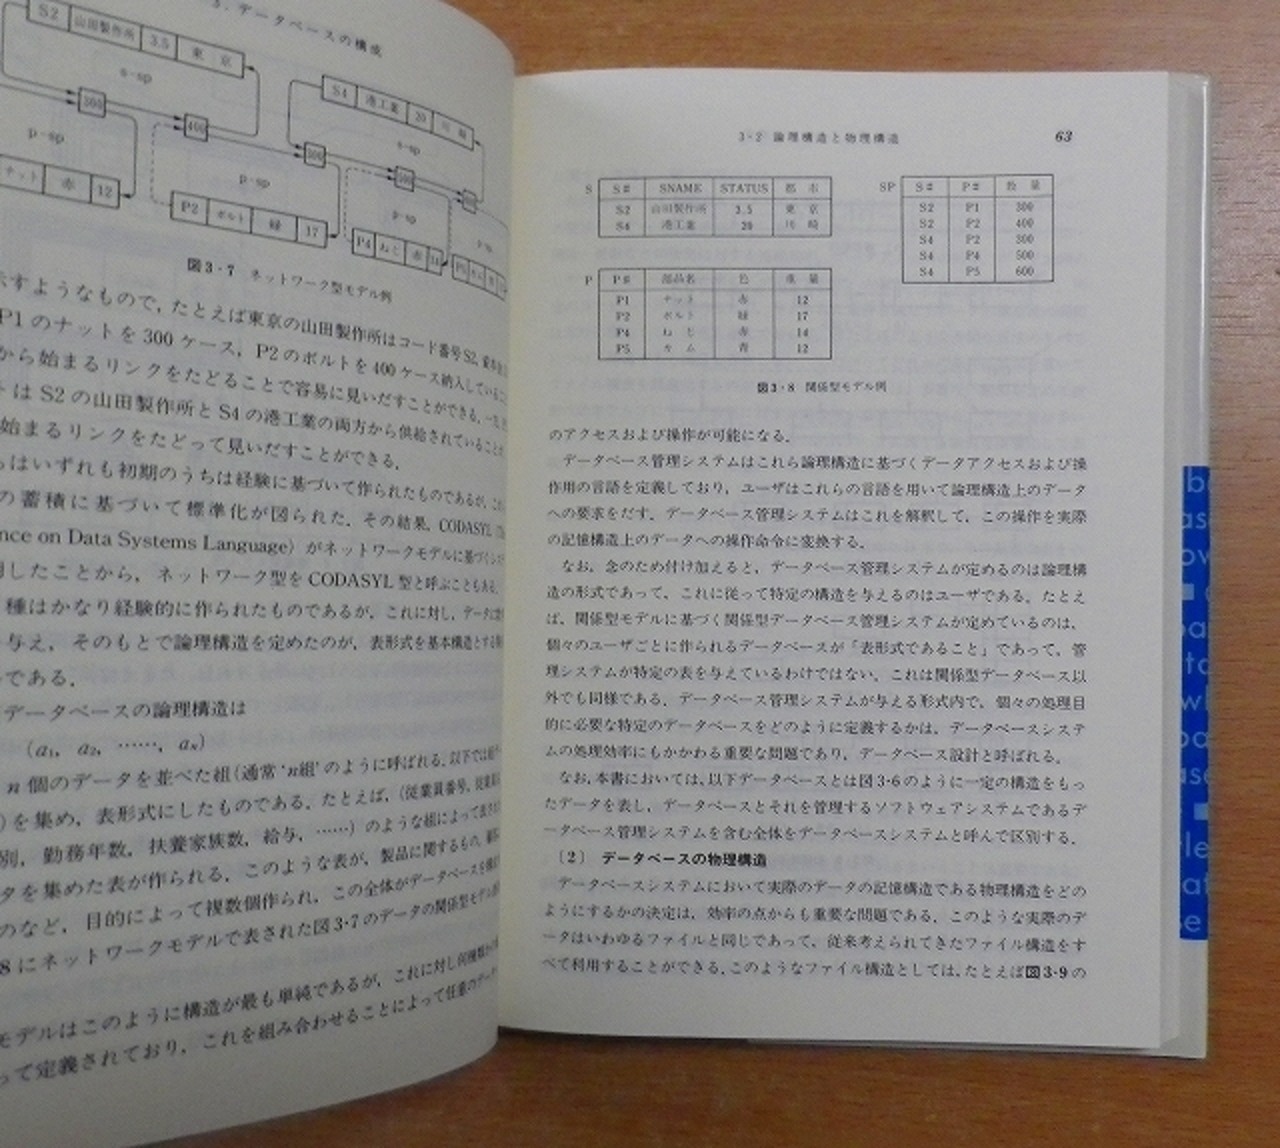 3. データベースの構成
S2 山田製作所 3.5 東 京
s-sp
S4 港工業 20 川 崎
s-sp
300
400
300
500
p-sp
p-sp
p-sp
ナット 赤 12
P2 ボルト 緑 17
P4 ねじ 赤 14
図3・7 ネットワーク型モデル例
示すようなもので,たとえば東京の山田製作所はコード番号S2,
P1のナットを300ケース,P2のボルトを400ケース納入していること
から始まるリンクをたどることで容易に見いだすことができる.
トはS2の山田製作所とS4の港工業の両方から供給されていることが
始まるリンクをたどって見いだすことができる.
らはいずれも初期のうちは経験に基づいて作られたものであるが,
の蓄積に基づいて標準化が図られた.その結果,CODASYL
nce on Data Systems Language)がネットワークモデルに基づく
したことから,ネットワーク型をCODASYL型と呼ぶこともある.
種はかなり経験的に作られたものであるが,これに対し,データに
与え,そのもとで論理構造を定めたのが,表形式を基本構造とする
である.
データベースの論理構造は
(a1, a2, ……, an)
n個のデータを並べた組(通常'n組'のように呼ばれる.以下では
)を集め,表形式にしたものである.たとえば,(従業員番号,
別,勤務年数,扶養家族数,給与,……)のような組によって
タを集めた表が作られる.このような表が,製品に関するもの,
のなど,目的によって複数個作られ,この全体がデータベースを
8にネットワークモデルで表された図3・7のデータの関係型モデル
モデルはこのように構造が最も単純であるが,これに対し何種類かの
って定義されており,これを組み合わせることによって任意のデータ
3・2 論理構造と物理構造 63
S
S# SNAME STATUS 都 市
S2 山田製作所 3.5 東 京
S4 港工業 20 川 崎
SP
S# P#数 量
S2 P1 300
S2 P2 400
S4 P2 300
S4 P4 500
S4 P5 600
P
P# 部品名 色 重 量
P1 ナット 赤 12
P2 ボルト 緑 17
P4 ねじ 赤 14
P5 カム 青 12
図3・8 関係型モデル例
のアクセスおよび操作が可能になる.
データベース管理システムはこれら論理構造に基づくデータアクセスおよび操
作用の言語を定義しており,ユーザはこれらの言語を用いて論理構造上のデータ
への要求をだす.データベース管理システムはこれを解釈して,この操作を実際
の記憶構造上のデータへの操作命令に変換する.
なお,念のため付け加えると,データベース管理システムが定めるのは論理構
造の形式であって,これに従って特定の構造を与えるのはユーザである.たとえ
ば,関係型モデルに基づく関係型データベース管理システムが定めているのは,
個々のユーザごとに作られるデータベースが「表形式であること」であって,管
理システムが特定の表を与えているわけではない.これは関係型データベース以
外でも同様である.データベース管理システムが与える形式内で,個々の処理目
的に必要な特定のデータベースをどのように定義するかは,データベースシステ
ムの処理効率にもかかわる重要な問題であり,データベース設計と呼ばれる.
なお,本書においては,以下データベースとは図3・6のように一定の構造をもっ
たデータを表し,データベースとそれを管理するソフトウェアシステムであるデ
ータベース管理システムを含む全体をデータベースシステムと呼んで区別する.
〔2〕 データベースの物理構造
データベースシステムにおいて実際のデータの記憶構造である物理構造をどの
ようにするかの決定は,効率の点からも重要な問題である.このような実際のデ
ータはいわゆるファイルと同じであって,従来考えられてきたファイル構造をす
べて利用することができる.このようなファイル構造としては,たとえば図3・9の